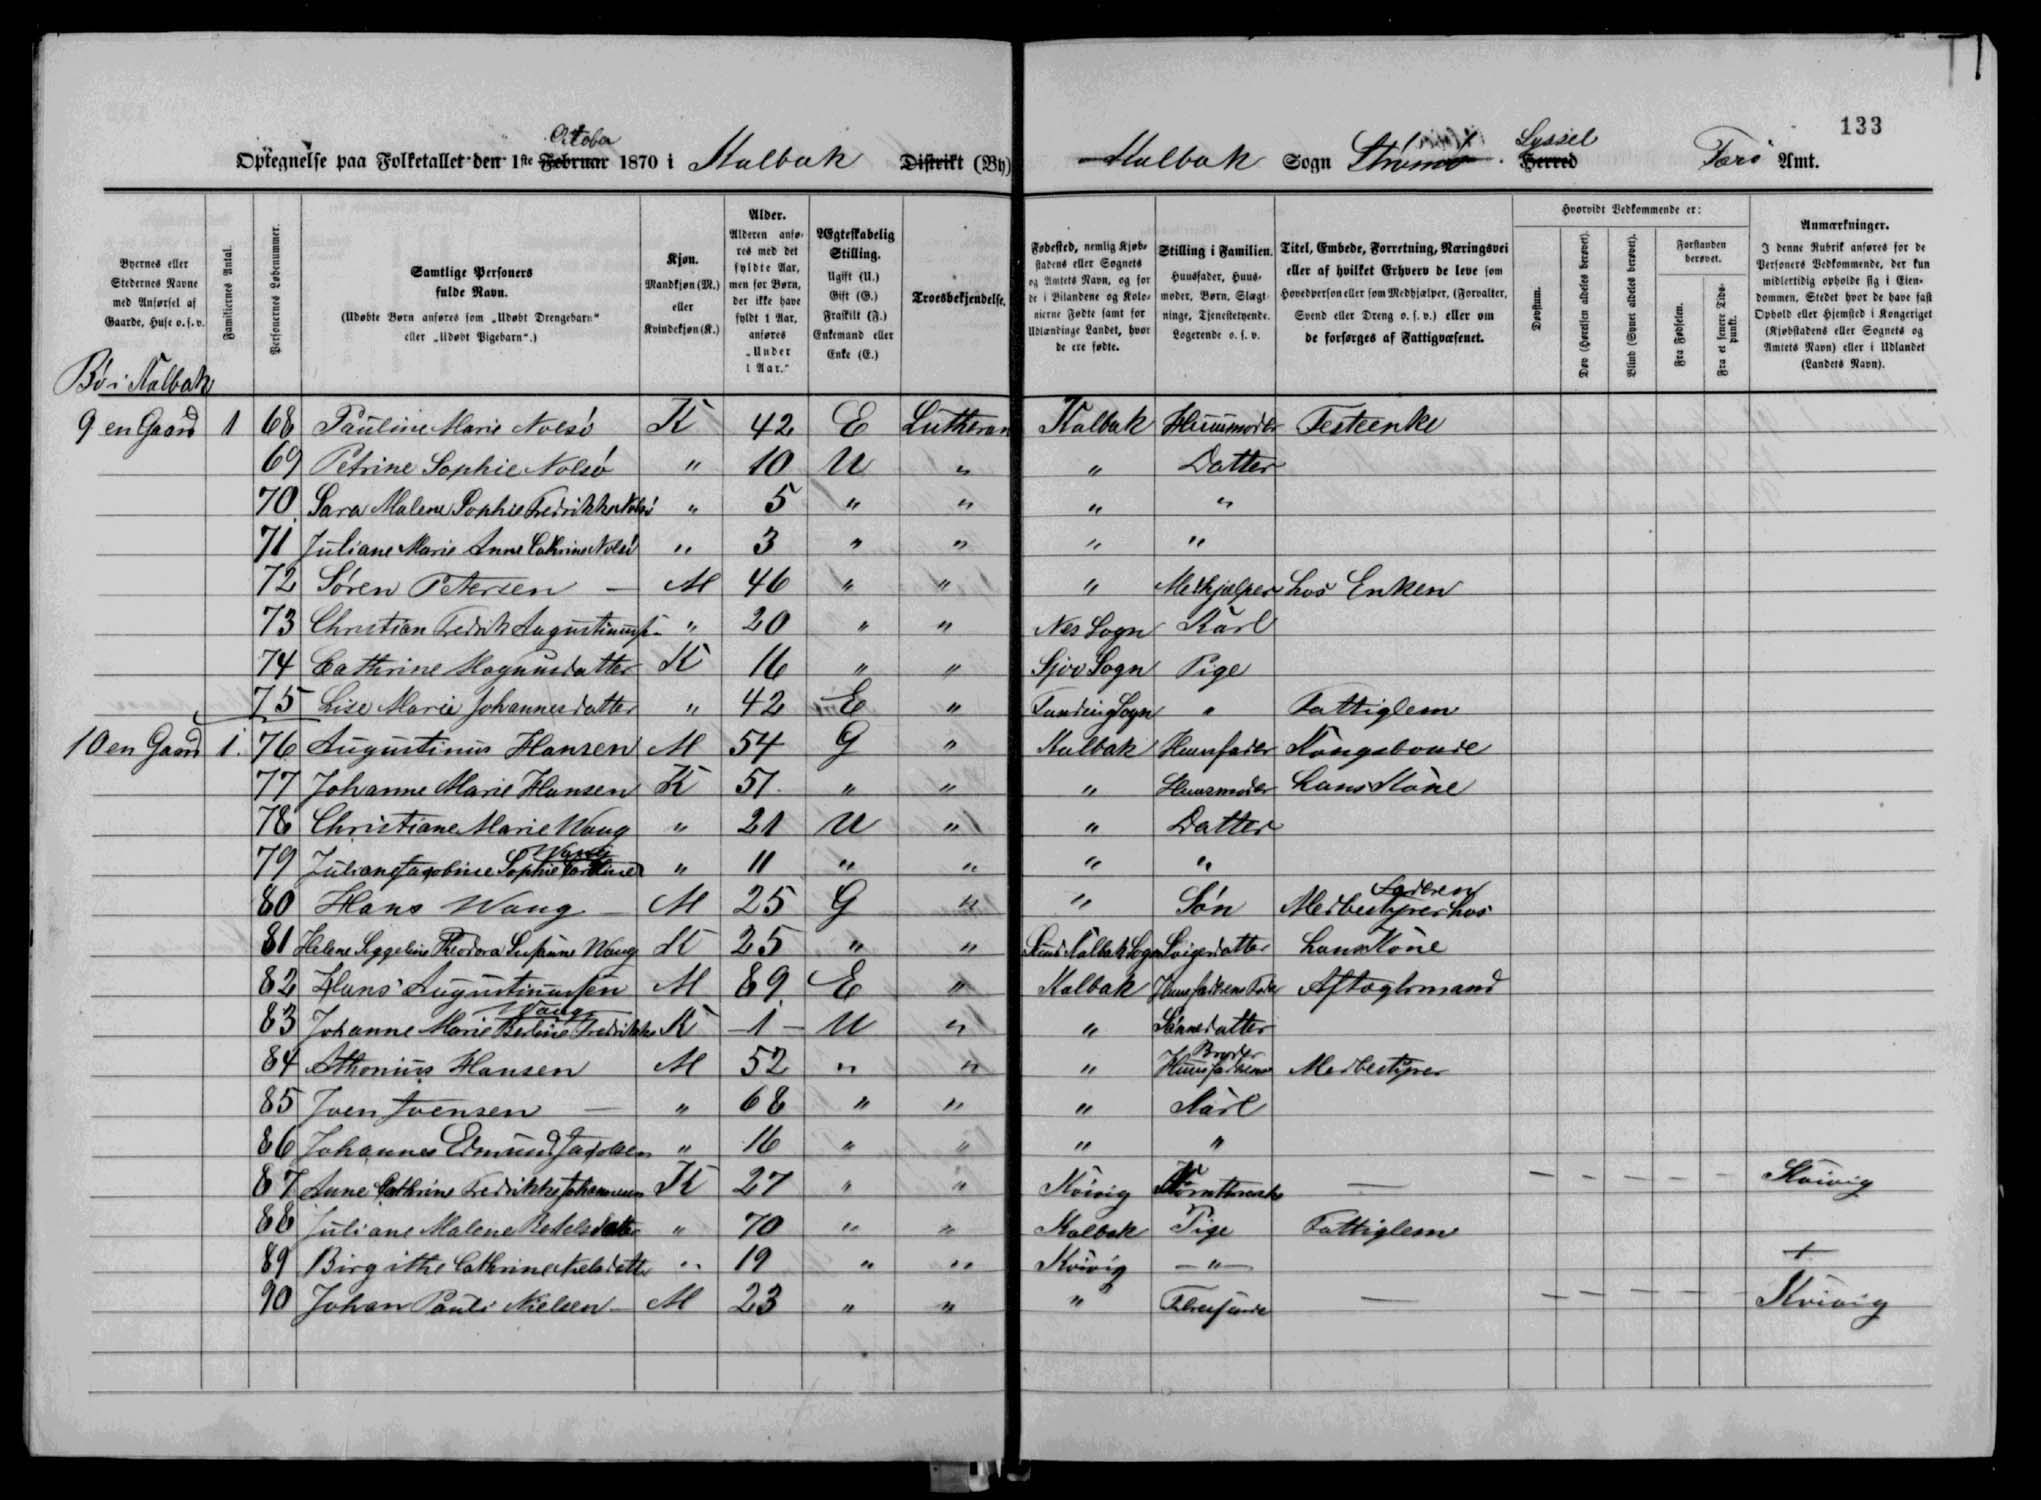 133
October
Optegnelse paa Folketallet den 1ste Februar 1870 i Kalbak Distrikt (By)
Kalbak Sogn Strømø Syssel Herred Færø Amt.
Byernes eller Stedernes Navne med Anførsel af Gaarde, Huse o.s.v.
Familiernes Antal.
Personernes Løbenummer.
Samtlige Personers fulde Navn.
(Udøbte Børn anføres som „Udøbt Drengebarn“ eller „Udøbt Pigebarn“.)
Kjøn.
Mandkjøn (M.) eller Kvindekjøn (K.)
Alder.
Alderen anføres med det fyldte Aar, men for Børn, der ikke have fyldt 1 Aar, anføres „Under 1 Aar.“
Ægteskabelig Stilling.
Ugift (U.) Gift (G.) Fraskilt (F.) Enkemand eller Enke (E.)
Troesbekjendelse.
Fødested, nemlig Kjøbstadens eller Sognets og Amtets Navn, og for de i Bilandene og Kolonierne Fødte samt for Udlændinge Landet, hvor de ere fødte.
Stilling i Familien.
Huusfader, Huusmoder, Børn, Slægtninge, Tjenestetyende, Logerende o. s. v.
Titel, Embede, Forretning, Næringsvei eller af hvilket Erhverv de leve som Hovedperson eller som Medhjælper, (Forvalter, Svend eller Dreng o. s. v.) eller om de forsørges af Fattigvæsenet.
Hvorvidt Vedkommende er:
Døvstum.
Døv (Hørelsen aldeles berøvet).
Blind (Synet aldeles berøvet).
Forstanden berøvet.
Fra Fødselen.
Fra et senere Tidspunkt.
Anmærkninger.
I denne Rubrik anføres for de Personers Vedkommende, der kun midlertidig opholde sig i Eiendommen, Stedet hvor de have fast Ophold eller Hjemsted i Kongeriget (Kjøbstadens eller Sognets og Amtets Navn) eller i Udlandet (Landets Navn).
Bø i Kalbak
9 en Gaard 1 68 Pauline Marie Nolsø K 42 E Lutheran Kalbak Huusmoder Festeenke
69 Petrine Sophie Nolsø " 10 U " " Datter
70 Sara Malene Sophie Fredrikke Nolsø " 5 " " " "
71 Juliane Marie Anne Cathrine Nolsø " 3 " " " "
72 Søren Petersen — M 46 " " " Medhjælper hos Enken
73 Christian Fredrik Augustinuss. " 20 " " Nes Sogn Karl
74 Cathrine Magnusdatter K 16 " " Sjov Sogn Pige
75 Lise Marie Johannesdatter " 42 E " Funding Sogn " Fattiglem
10 en Gaard 1. 76 Augustinus Hansen M 54 G " Kalbak Huusfader Kongsbonde
77 Johanne Marie Hansen K 51 " " " Huusmoder hans Kone
78 Christiane Marie Waag " 21 U " " Datter
79 Juliane Jacobine Sophie Caroline Waag " 11 " " " "
80 Hans Waag — M 25 G " " Søn Medbestyrer hos Faderen
81 Helene Seggeline Theodora Susanne Waag K 25 " " Sund Kalbak Sogn Svigerdatter hans Kone
82 Hans Augustinussen M 89 E " Kalbak Huusfaderens Fader Aftægtsmand
83 Johanne Marie Berline Fredrikke Waag K — 1 — U " " Sønnedatter
84 Athonius Hansen M 52 " " " Huusfaderens Broder Medbestyrer
85 Joen Joensen — " 68 " " " Karl
86 Johannes Edmund Jacobsen " 16 " " " "
87 Anne Cathrine Fredrikke Johannesen K 27 " " Kvivig — — — — — — Kvivig
88 Juliane Malene " 70 " " Kalbak Pige Fattiglem
89 Birgithe Cathrine " 19 " " Kvivig — " — +
90 Johan Pauli Nielsen — M 23 " " " — — — — — — Kvivig